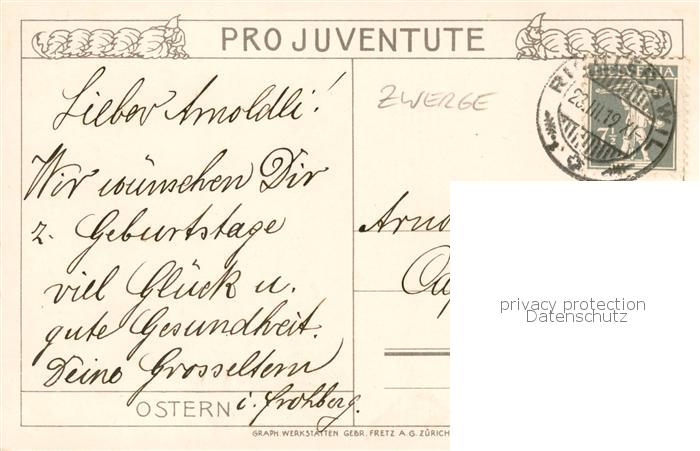 PRO JUVENTUTE
Lieber Arnoldli!
Wir wünschen Dir
z. Geburtstage
viel Glück u.
gute Gesundheit.
Deine Grosseltern
i. Frohberg.
OSTERN
ZWERGE
HELVETIA
7½
23.III.19.XI-
Arno
Cap
privacy protection
Datenschutz
GRAPH. WERKSTÄTTEN GEBR. FRETZ A.G. ZÜRICH